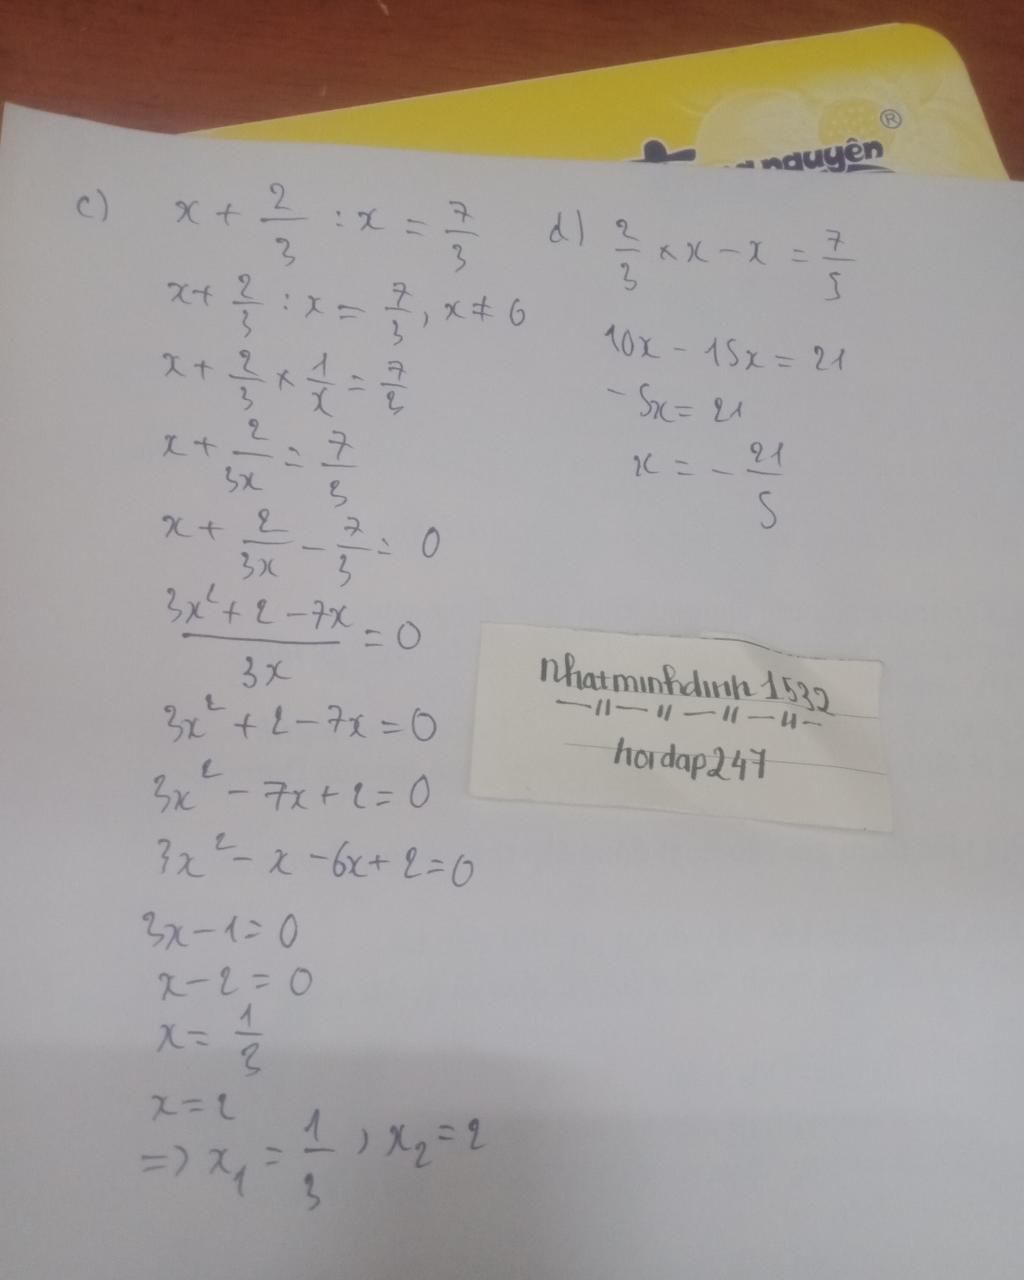 nguyên
®
c) x + 2/3 : x = 7/3
x + 2/3 : x = 7/3, x ≠ 0
x + 2/3 × 1/x = 7/3
x + 2/3x = 7/3
x + 2/3x - 7/3 = 0
3x² + 2 - 7x / 3x = 0
3x² + 2 - 7x = 0
3x² - 7x + 2 = 0
3x² - x - 6x + 2 = 0
3x - 1 = 0
x - 2 = 0
x = 1/3
x = 2
=> x₁ = 1/3, x₂ = 2
d) 2/3 × x - x = 7/5
10x - 15x = 21
-5x = 21
x = - 21/5
nhatminhdinh1532
hoidap247